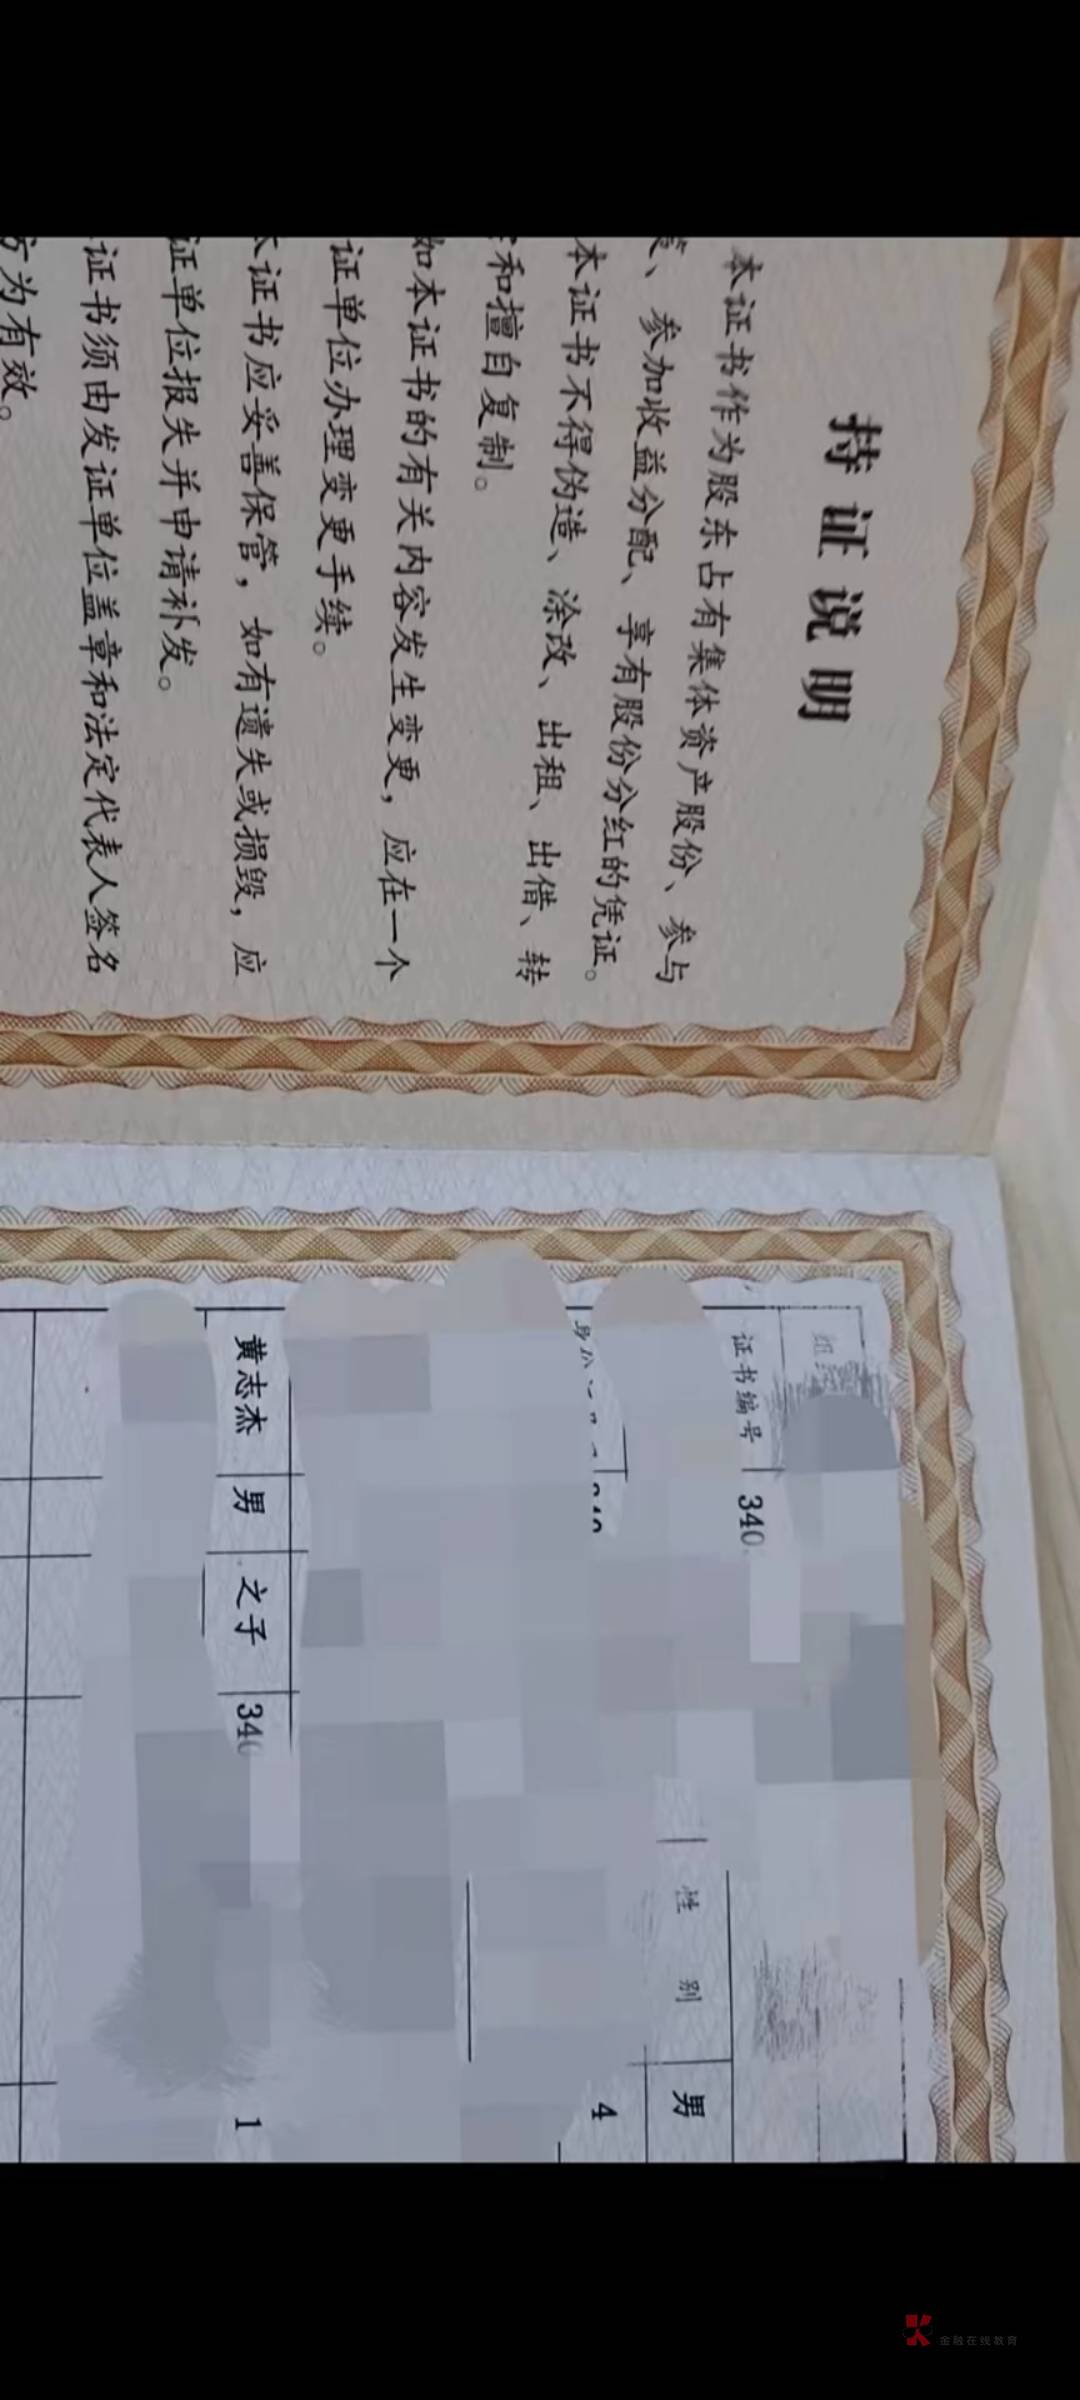 持证说明
本证书作为股东占有集体资产股份、参与
、参加收益分配、享有股份分红的凭证。
本证书不得伪造、涂改、出租、出借、转
和擅自复制。
如本证书的有关内容发生变更，应在一个
证单位办理变更手续。
本证书应妥善保管，如有遗失或损毁，应
证单位报失并申请补发。
证书须由发证单位盖章和法定代表人签名
方为有效。
组
证书编号 340
性别 男
4
黄志杰 男 之子 340 1
金融在线教育